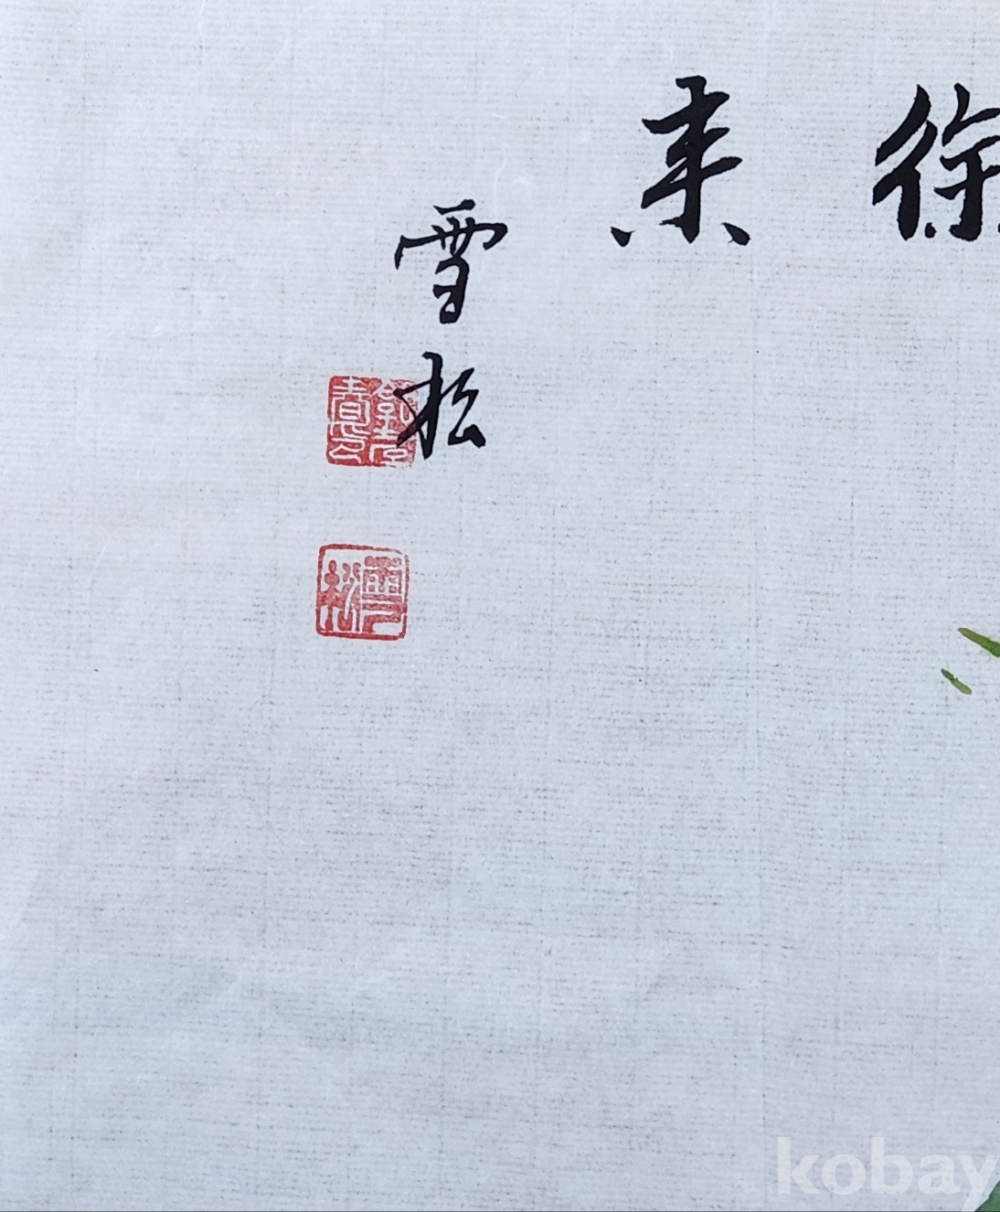 徐
来
雪松
雪松
kobay